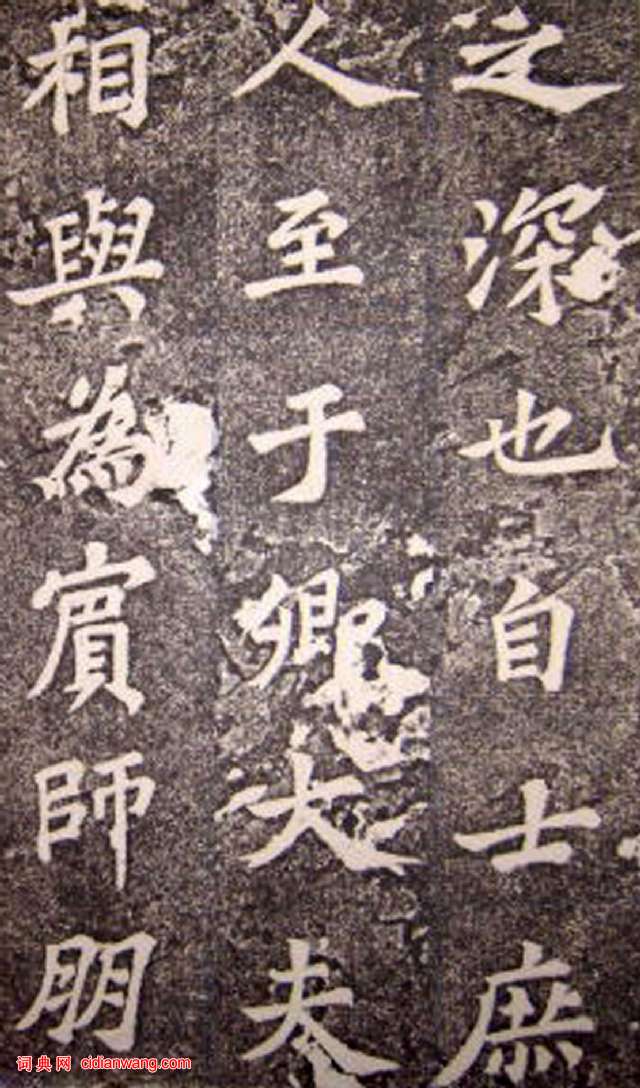 之深也自士庶
人至于卿大夫
相與為賔師朋
词典网 cidianwang.com